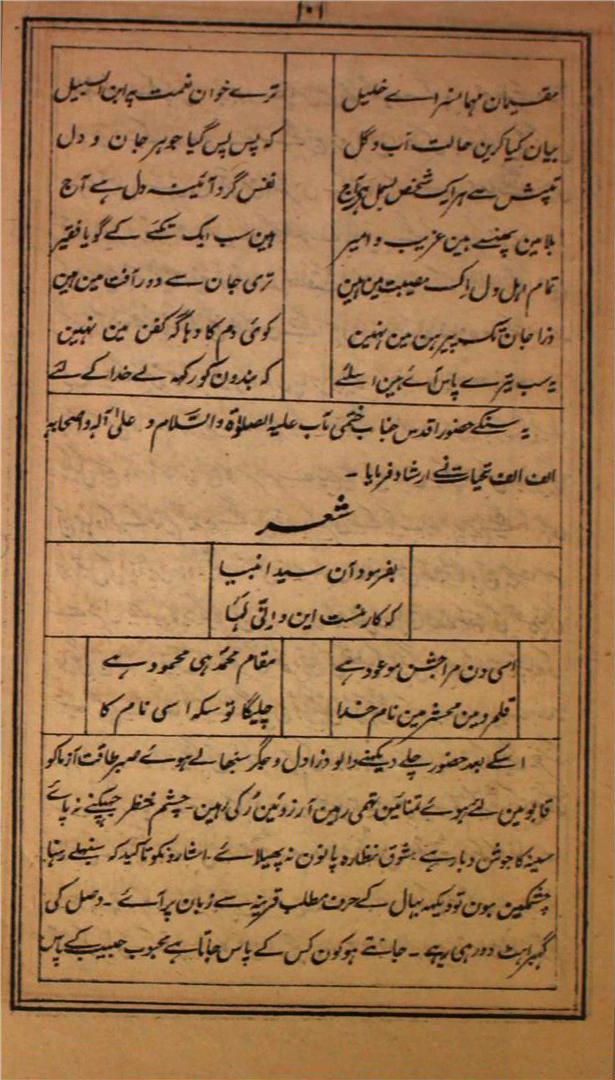 ۱۰۱
مقیمان مہمانسرائے خلیل ترے خوان نعمت پہ ابن السبیل
بیان کیا کرین حالت آب و گل کہ پس پس گیا جوہر جان و دل
تپش سے ہر اک شخص بسمل ہے آج نفس گرد آئینہ دل ہے آج
بلا مین پھنسے ہین غریب و امیر ہین سب ایک تکئے کے گویا فقیر
تمام اہل دل اک مصیبت مین ہین تری جان سے دور آفت مین ہین
ذرا جان تک پیرہن مین نہین کوئی دم کا دہاگہ کفن مین نہین
یہ سب تیرے پاس آئے ہین اسلئے کہ بندون کو رکھ لے خدا کے لئے
یہ سنکے حضور اقدس جناب ختمی مآب علیہ الصلوٰۃ والسَّلام و علیٰ آلہ واصحابہ
الف الف تحیات نے ارشاد فرمایا ۔
شعر
بفرمود آن سید انبیا
کہ کار منست این و اِنّی لَہَا
اسی دن مرا جشن موعود ہے مقام محمدؐ ہی محمود ہے
قلمرو مین محشر مین نام خدا چلیگا تو سکہ اسی نام کا
اسکے بعد حضور چلے دیکھنے والو ذرا دل و جگر سنبھالے ہوئے صبر طاقت آزما کو
قابو مین لئے ہوئے تمنائین تھمی رہین آرزوئین رُکی رہین۔ چشم منتظر جھپکنے نہ پائے
سینہ کا جوش دبا رہے شوق نظارہ پانون نہ پھیلائے۔ اشارونکو تاکید کہ سنبھلے رہنا۔
چشمکین ہون تو دیکھ بہال کے حرف مطلب قرینہ سے زبان پر آئے ۔ وصل کی
گھبراہٹ دور ہی رہے ۔ جانتے ہو کون کس کے پاس جاتا ہے محبوب حبیب کے پاس